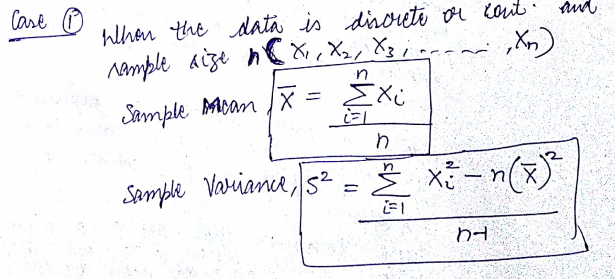 Case ① When the data is discrete or cont. and
sample size n (X₁, X₂, X₃, ------, Xn)
Sample Mean, X̄ = Σ_{i=1}^{n} Xi / n
Sample Variance, S² = Σ_{i=1}^{n} Xi² - n(X̄)² / n-1